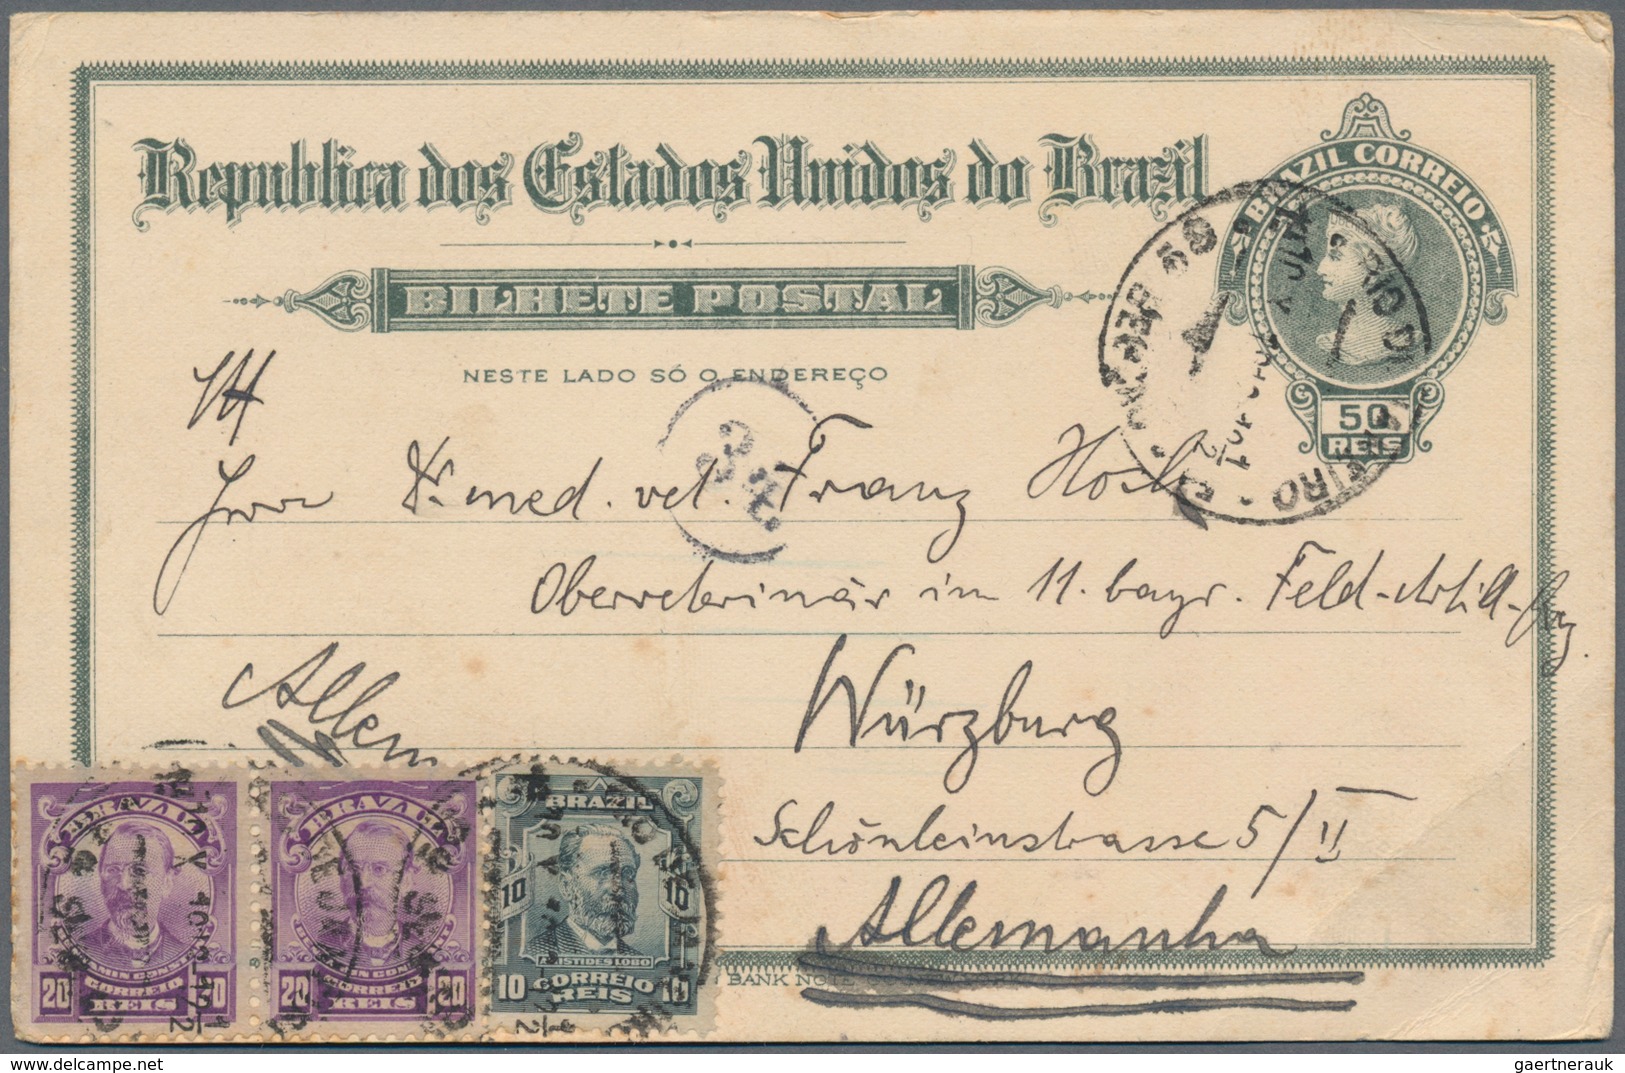 Republica dos Estados Unidos do Brazil
BRAZIL CORREIO
50
REIS
BILHETE POSTAL
NESTE LADO SÓ O ENDEREÇO
Herrn Dr. med. vet. Franz
Oberveterinär im 11. bayr. Feld-Artill-Rg.
Würzburg
Schönleinstrasse 5/II
Allemanha
Allem
BRAZIL
CORREIO
20 REIS 20
BRAZIL
CORREIO
20 REIS 20
BRAZIL
10 10
ARISTIDES LOBO
10 CORREIO 10
REIS
BANK NOTE
delcampe.net
gaertnerauk